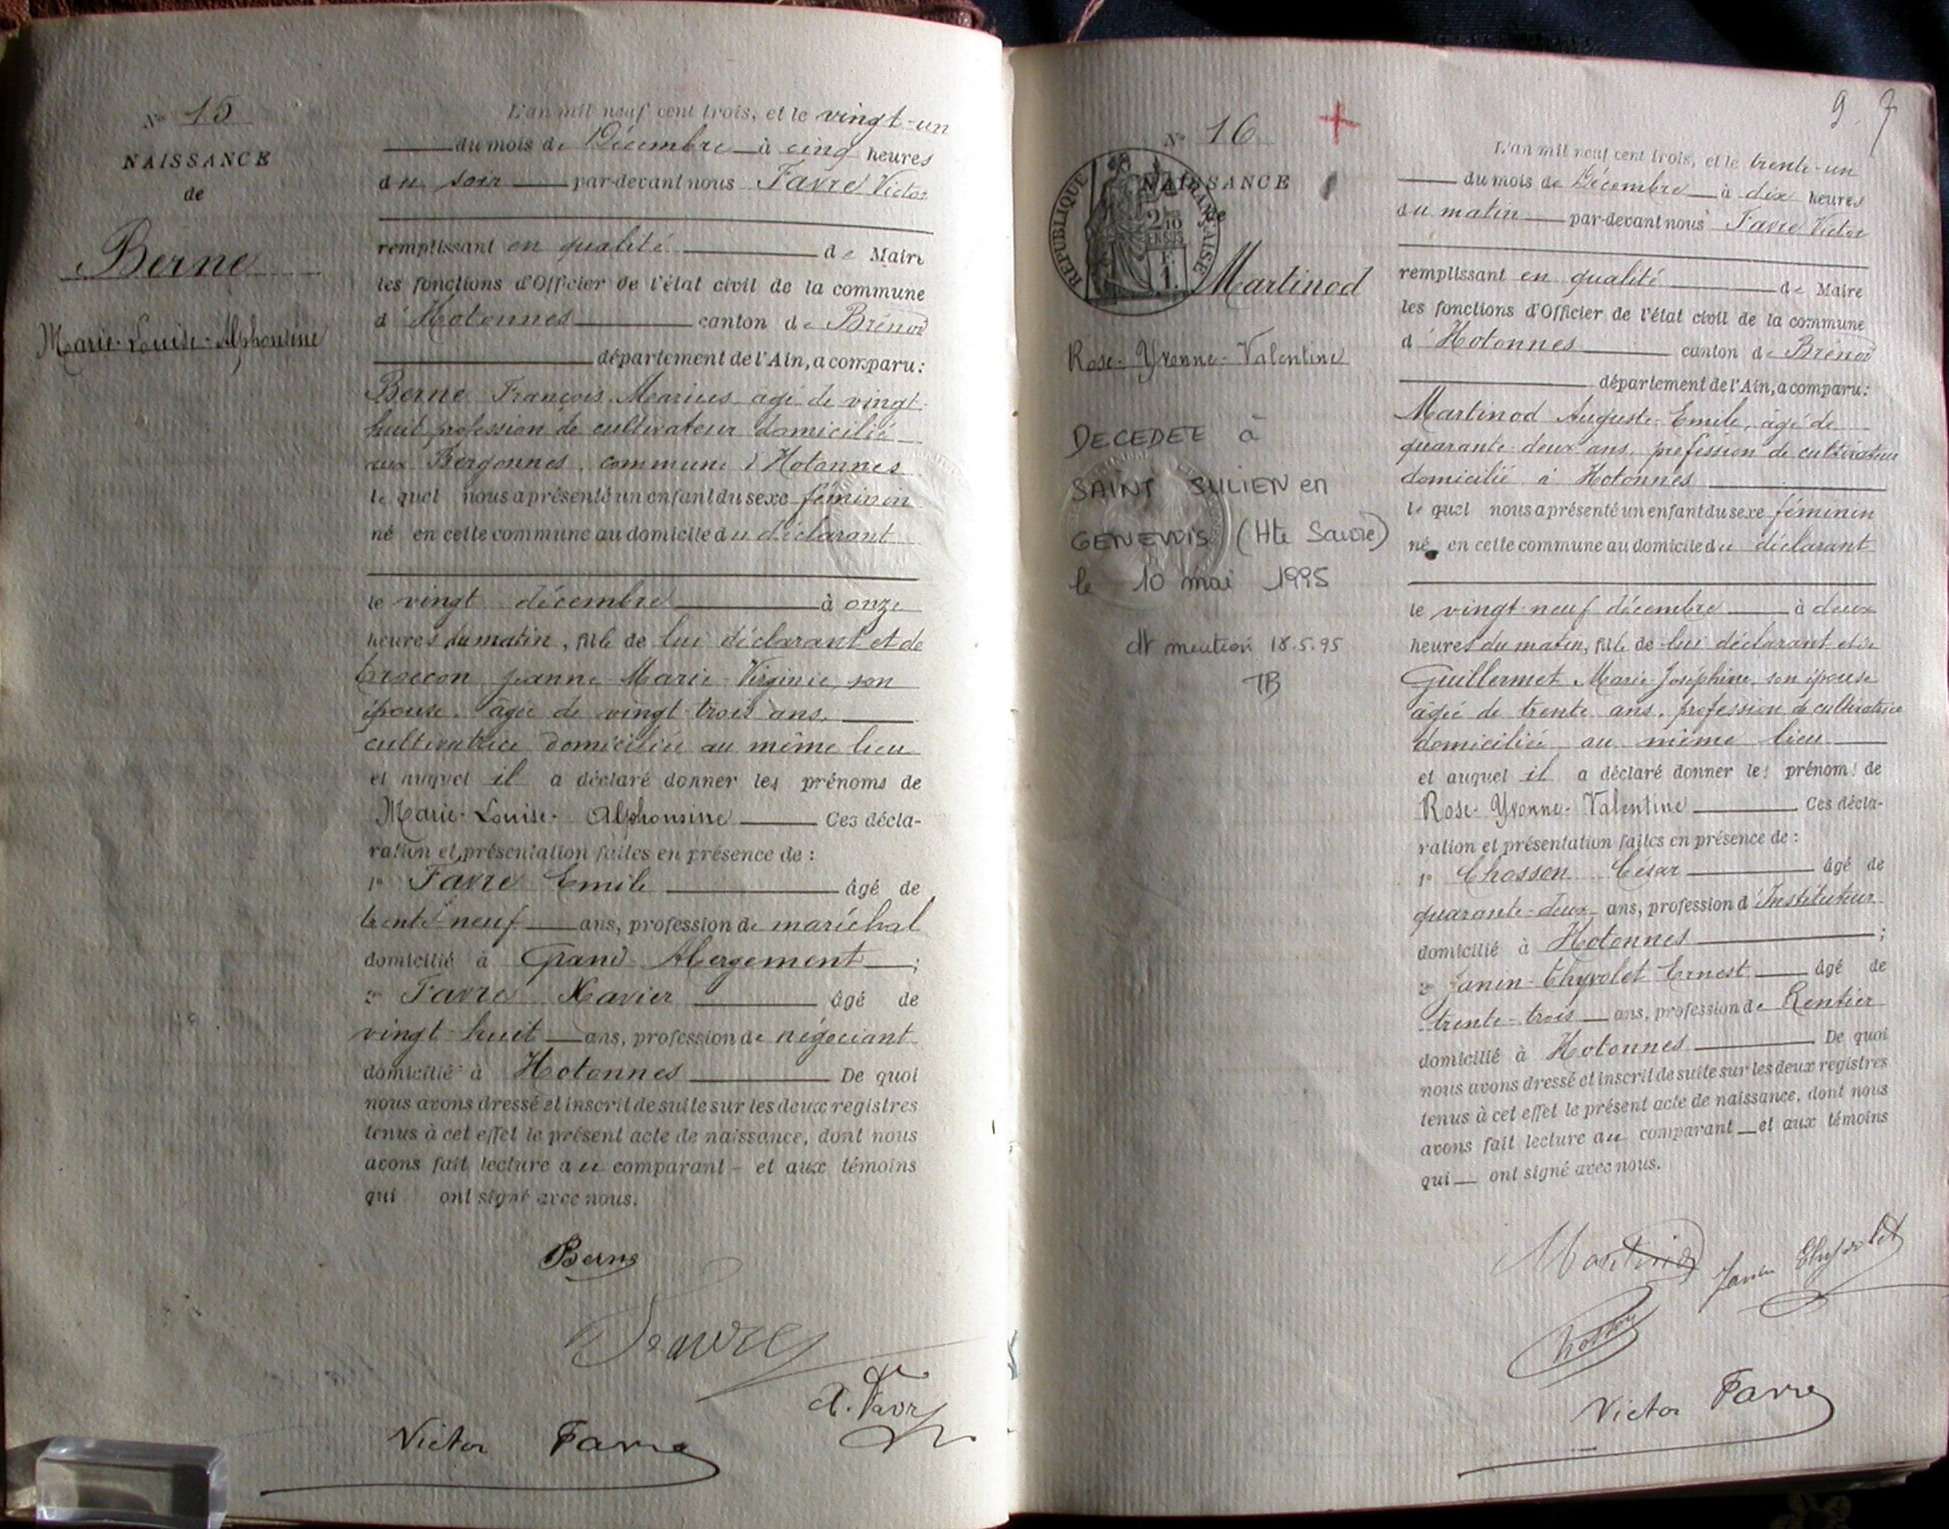 N° 15
NAISSANCE
de
Berne
Marie-Louise-Alphonsine
L'an mil neuf cent trois, et le vingt-un
du mois de Décembre à cinq heures
du soir par-devant nous Favre Victor
remplissant en qualité de Maire
les fonctions d'Officier de l'état civil de la commune
d'Hotonnes canton de Brénod
département de l'Ain, a comparu :
Berne François Marius âgé de vingt
huit profession de cultivateur domicilié
aux Bergonnes, commune d'Hotonnes
le quel nous a présenté un enfant du sexe féminin
né en cette commune au domicile du déclarant
le vingt décembre à onze
heures du matin, fille de lui déclarant et de
Jeanne Marie Virginie, son
épouse, âgée de vingt trois ans,
cultivatrice domiciliée au même lieu
et auquel il a déclaré donner les prénoms de
Marie-Louise-Alphonsine Ces décla-
ration et présentation faites en présence de :
1° Favre Emile âgé de
trente neuf ans, profession de maréchal
domicilié à Grand Abergement ;
2° Favre Xavier âgé de
vingt huit ans, profession de négociant
domicilié à Hotonnes De quoi
nous avons dressé et inscrit de suite sur les deux registres
tenus à cet effet le présent acte de naissance, dont nous
avons fait lecture au comparant et aux témoins
qui ont signé avec nous.
Berne
Favre
X. Favre
Victor Favre
9
N° 16
NAISSANCE
de
RÉPUBLIQUE FRANÇAISE
Martinod
Rose-Yvonne-Valentine
DECEDEE à
SAINT JULIEN en
GENEVOIS (Hte Savoie)
le 10 mai 1995
dt mention 18.5.95
TB
L'an mil neuf cent trois, et le trente-un
du mois de Décembre à dix heures
du matin par-devant nous Favre Victor
remplissant en qualité de Maire
les fonctions d'Officier de l'état civil de la commune
d'Hotonnes canton de Brénod
département de l'Ain, a comparu :
Martinod Auguste-Emile, âgé de
quarante-deux ans, profession de cultivateur
domicilié à Hotonnes
le quel nous a présenté un enfant du sexe féminin
né en cette commune au domicile du déclarant
le vingt-neuf décembre à deux
heures du matin, fille de lui déclarant et de
Guillermet Marie Joséphine, son épouse
âgée de trente ans, profession de cultivatrice
domiciliée au même lieu
et auquel il a déclaré donner les prénoms de
Rose-Yvonne-Valentine Ces décla-
ration et présentation faites en présence de :
1° Chosson César âgé de
quarante-deux ans, profession d'Instituteur
domicilié à Hotonnes ;
2° Janin-Thyvolet Ernest âgé de
trente-trois ans, profession de Rentier
domicilié à Hotonnes De quoi
nous avons dressé et inscrit de suite sur les deux registres
tenus à cet effet le présent acte de naissance, dont nous
avons fait lecture au comparant et aux témoins
qui ont signé avec nous.
Martinod
Janin Thyvolet
Victor Favre